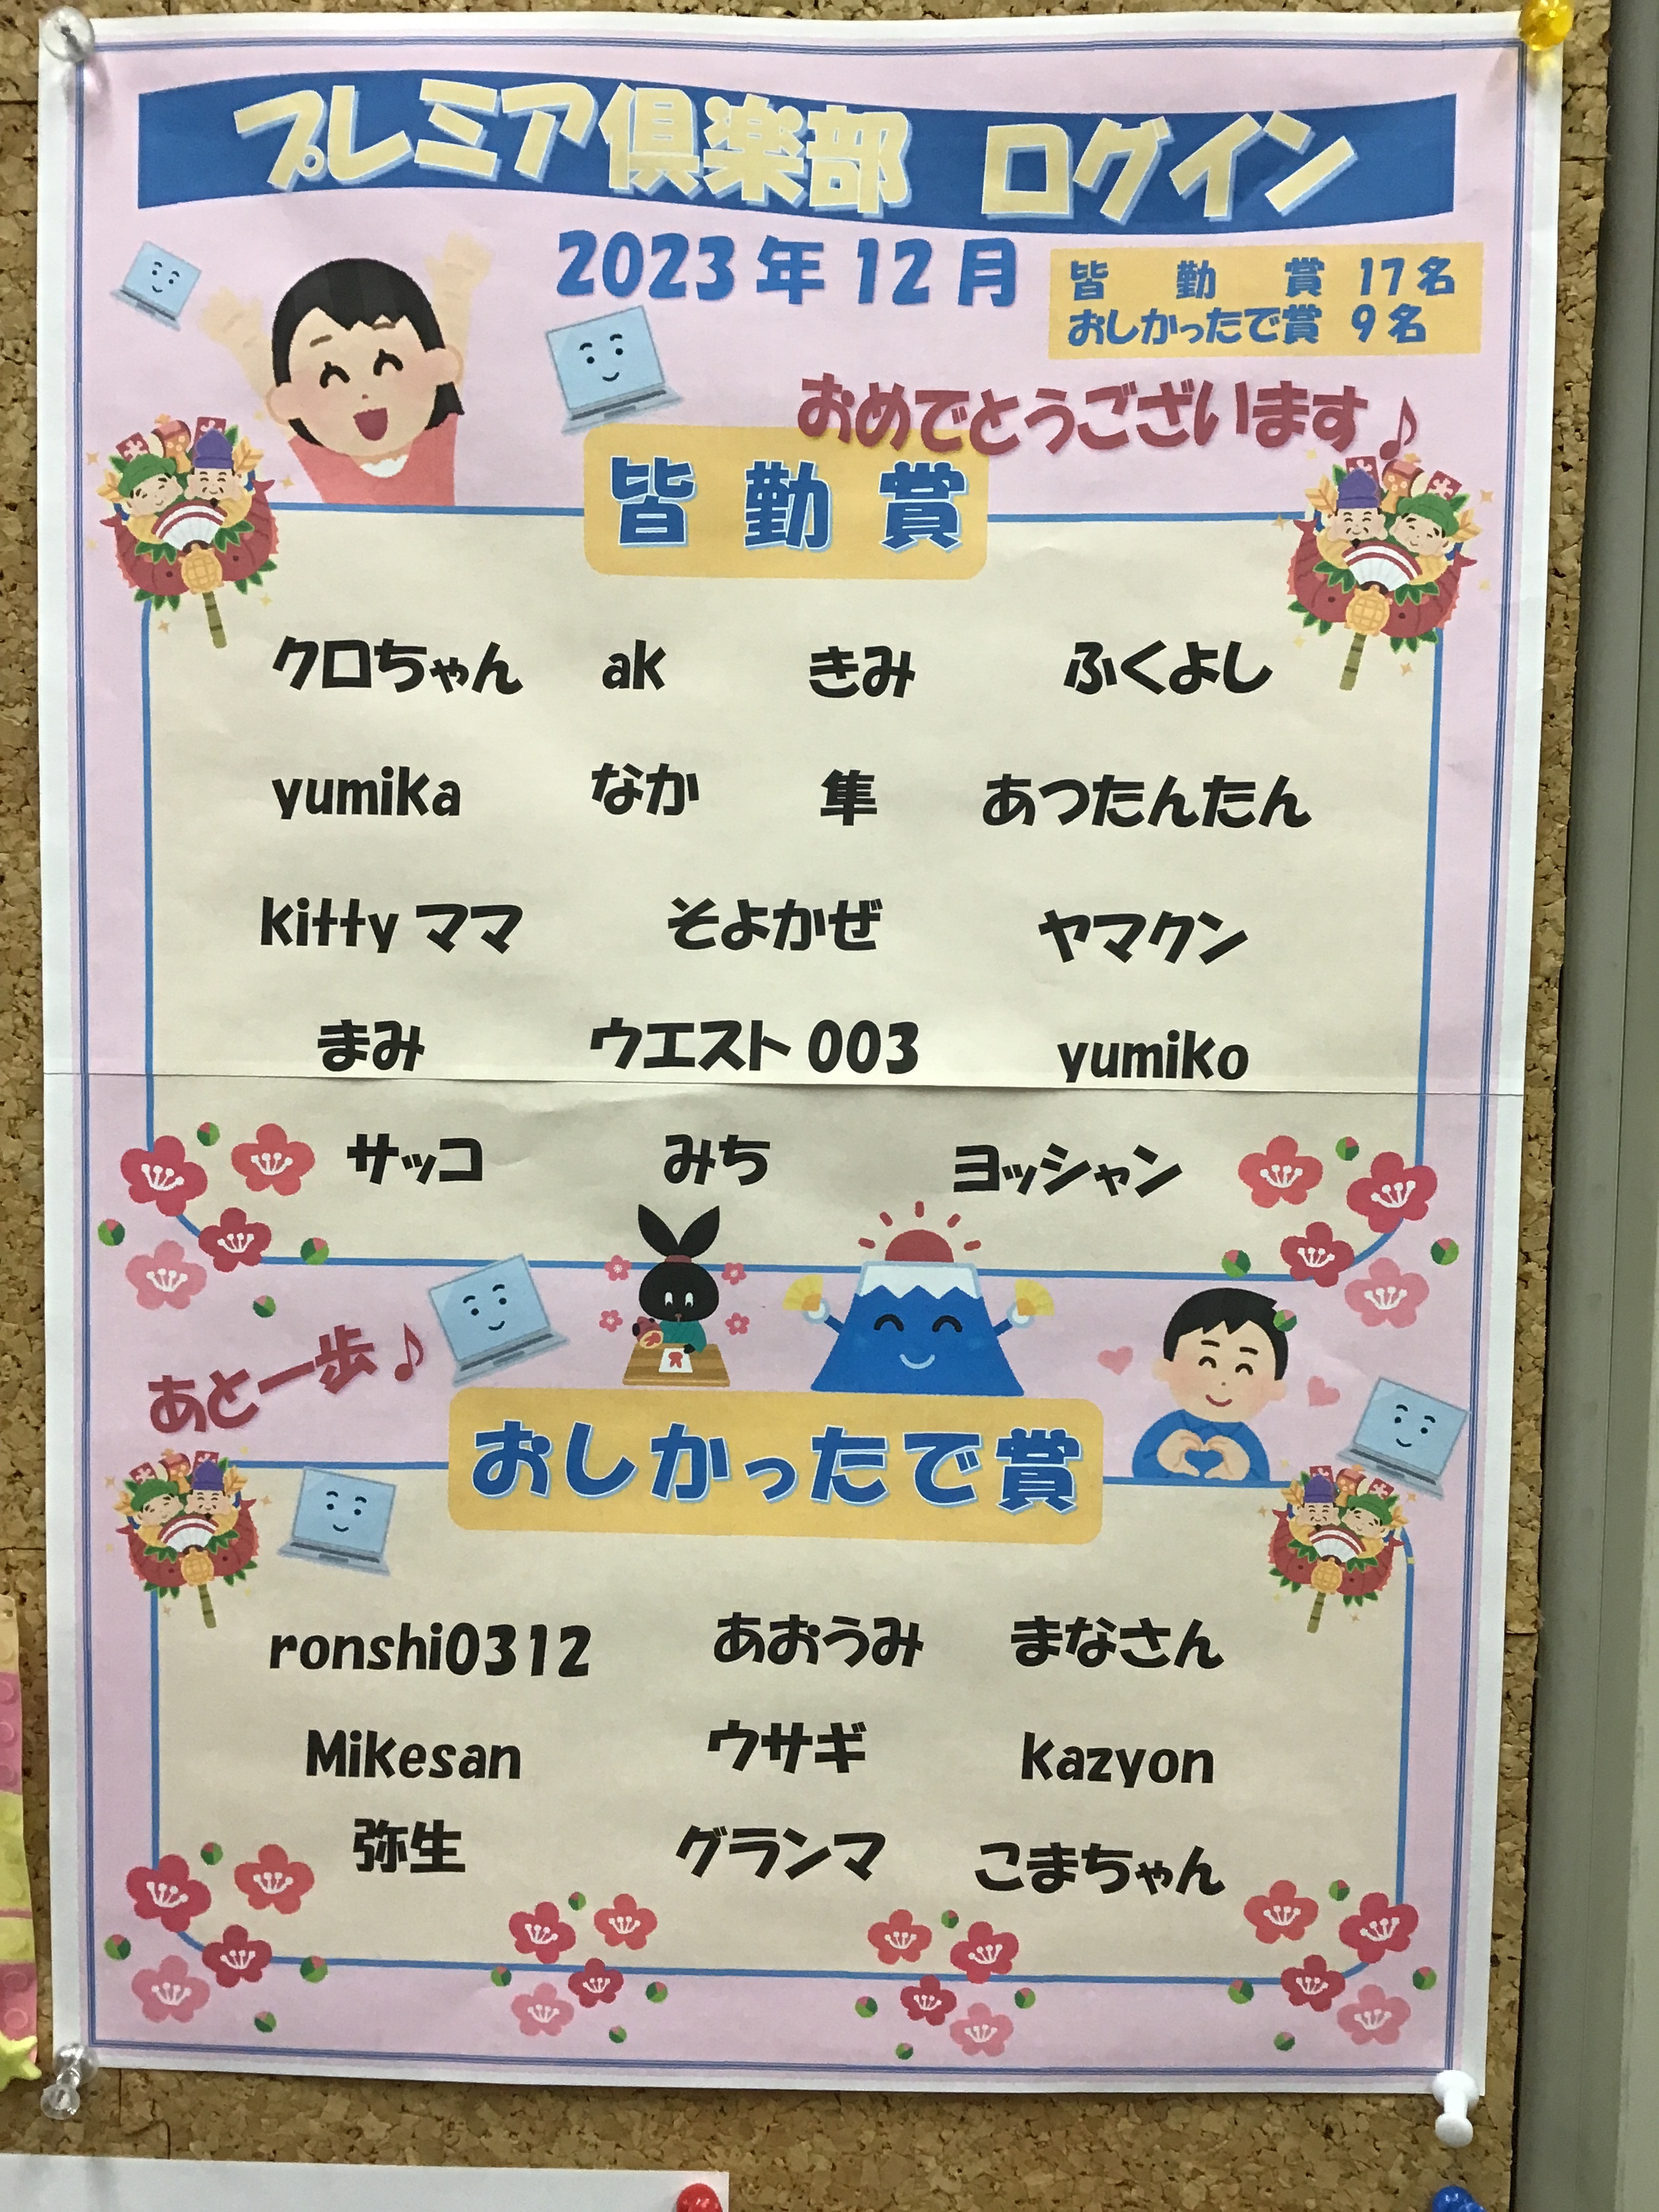 プレミア倶楽部 ログイン
2023年12月
皆勤賞 17名
おしかったで賞 9名
おめでとうございます♪
皆勤賞
クロちゃん ak きみ ふくよし
yumika なか 隼 あつたんたん
kittyママ そよかぜ ヤマクン
まみ ウエスト003 yumiko
サッコ みち ヨッシャン
あと一歩♪
おしかったで賞
ronshi0312 あおうみ まなさん
Mikesan ウサギ kazyon
弥生 グランマ こまちゃん